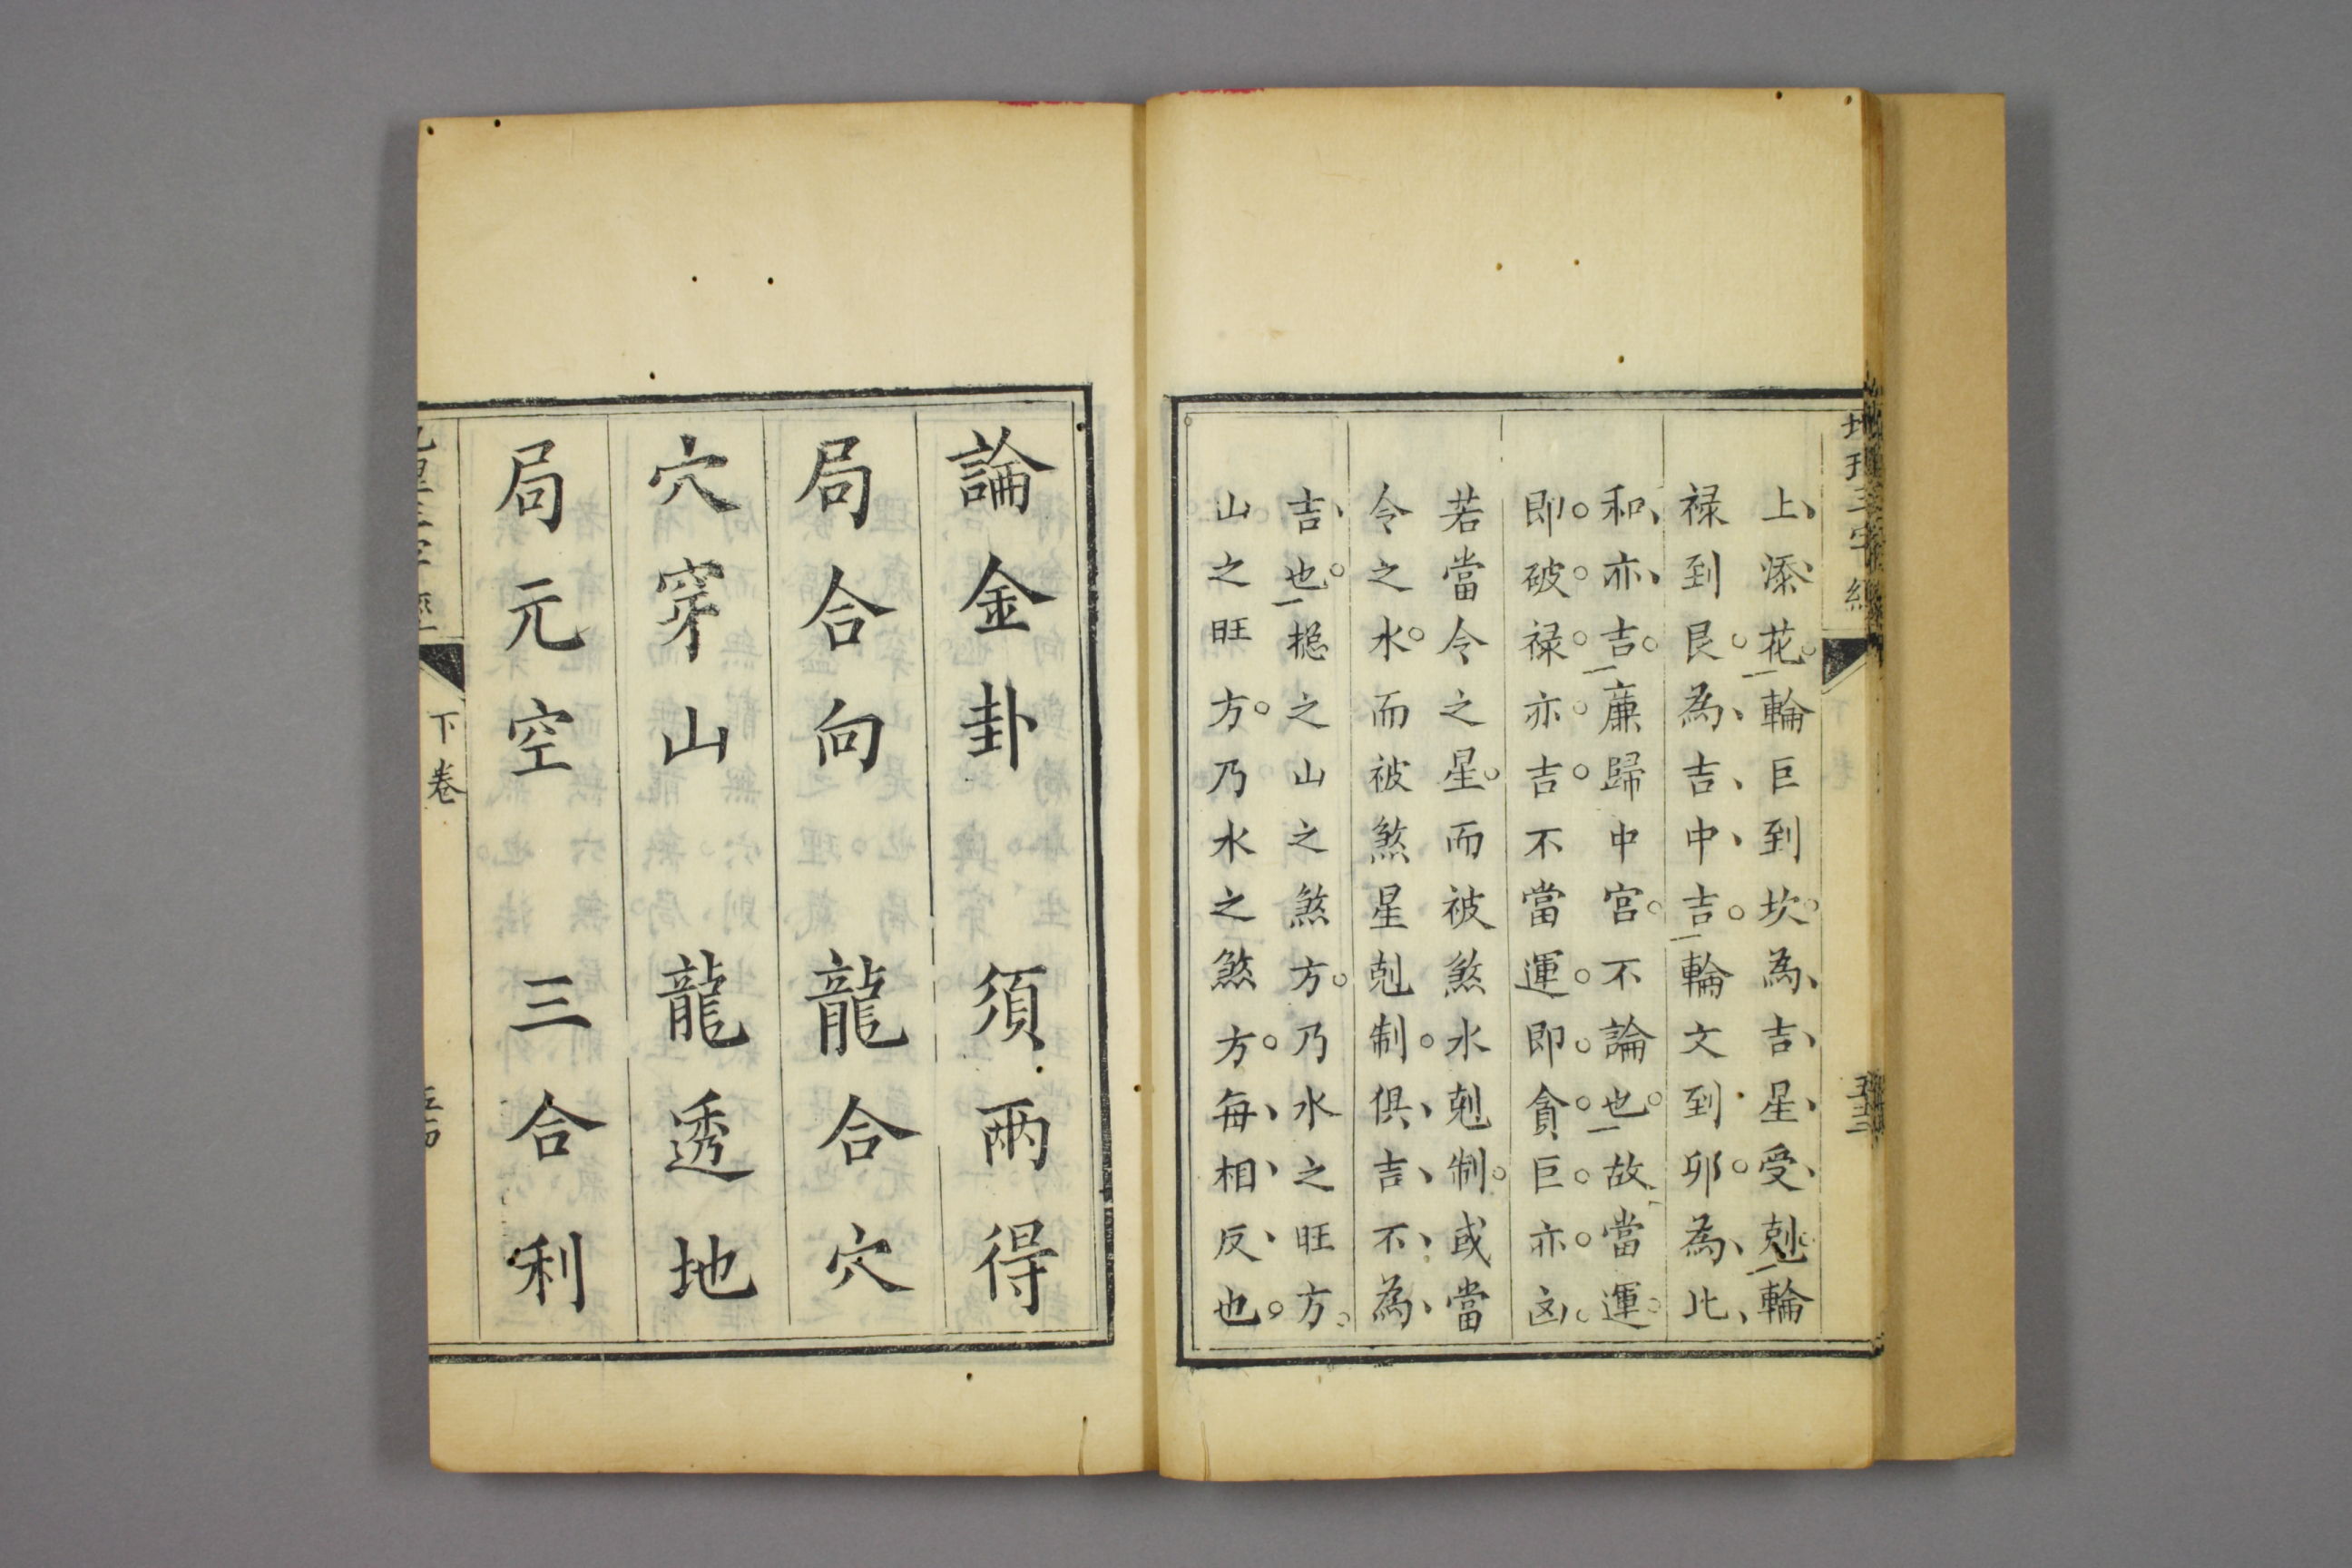 地理三字經 下卷 五十三
上、添、花。輪巨到坎。為、吉、星、受、剋。輪
祿到艮。為、吉、中、吉。輪文到卯。為、比、
和、亦、吉。廉歸中宮。不論也。故當運。
即。破。祿。亦。吉。不當運。即。貪。巨。亦。凶。
若當令之星。而被煞水剋制。或當
令之水。而被煞星剋制。俱、吉、不、為、
吉、也。摠之山之煞方。乃水之旺方。
山之旺方。乃水之煞方。每、相、反、也。
論金卦 須兩得
局合向 龍合穴
穴穿山 龍透地
局元空 三合利
下卷